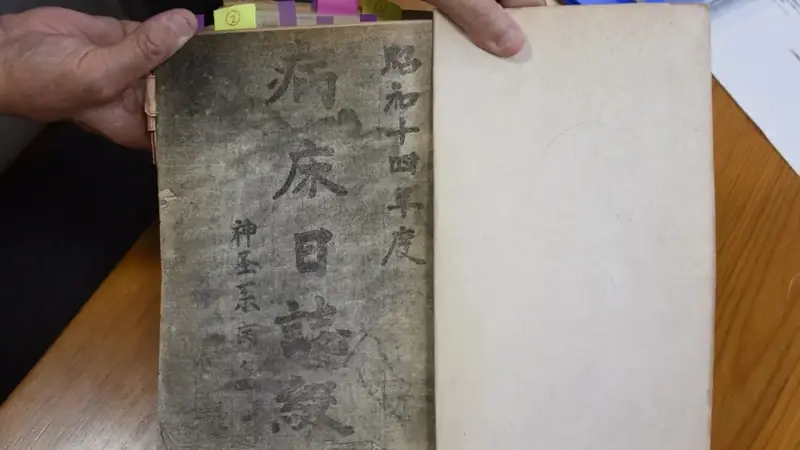 ②
昭和十四年度
病床日誌綴
神圣系